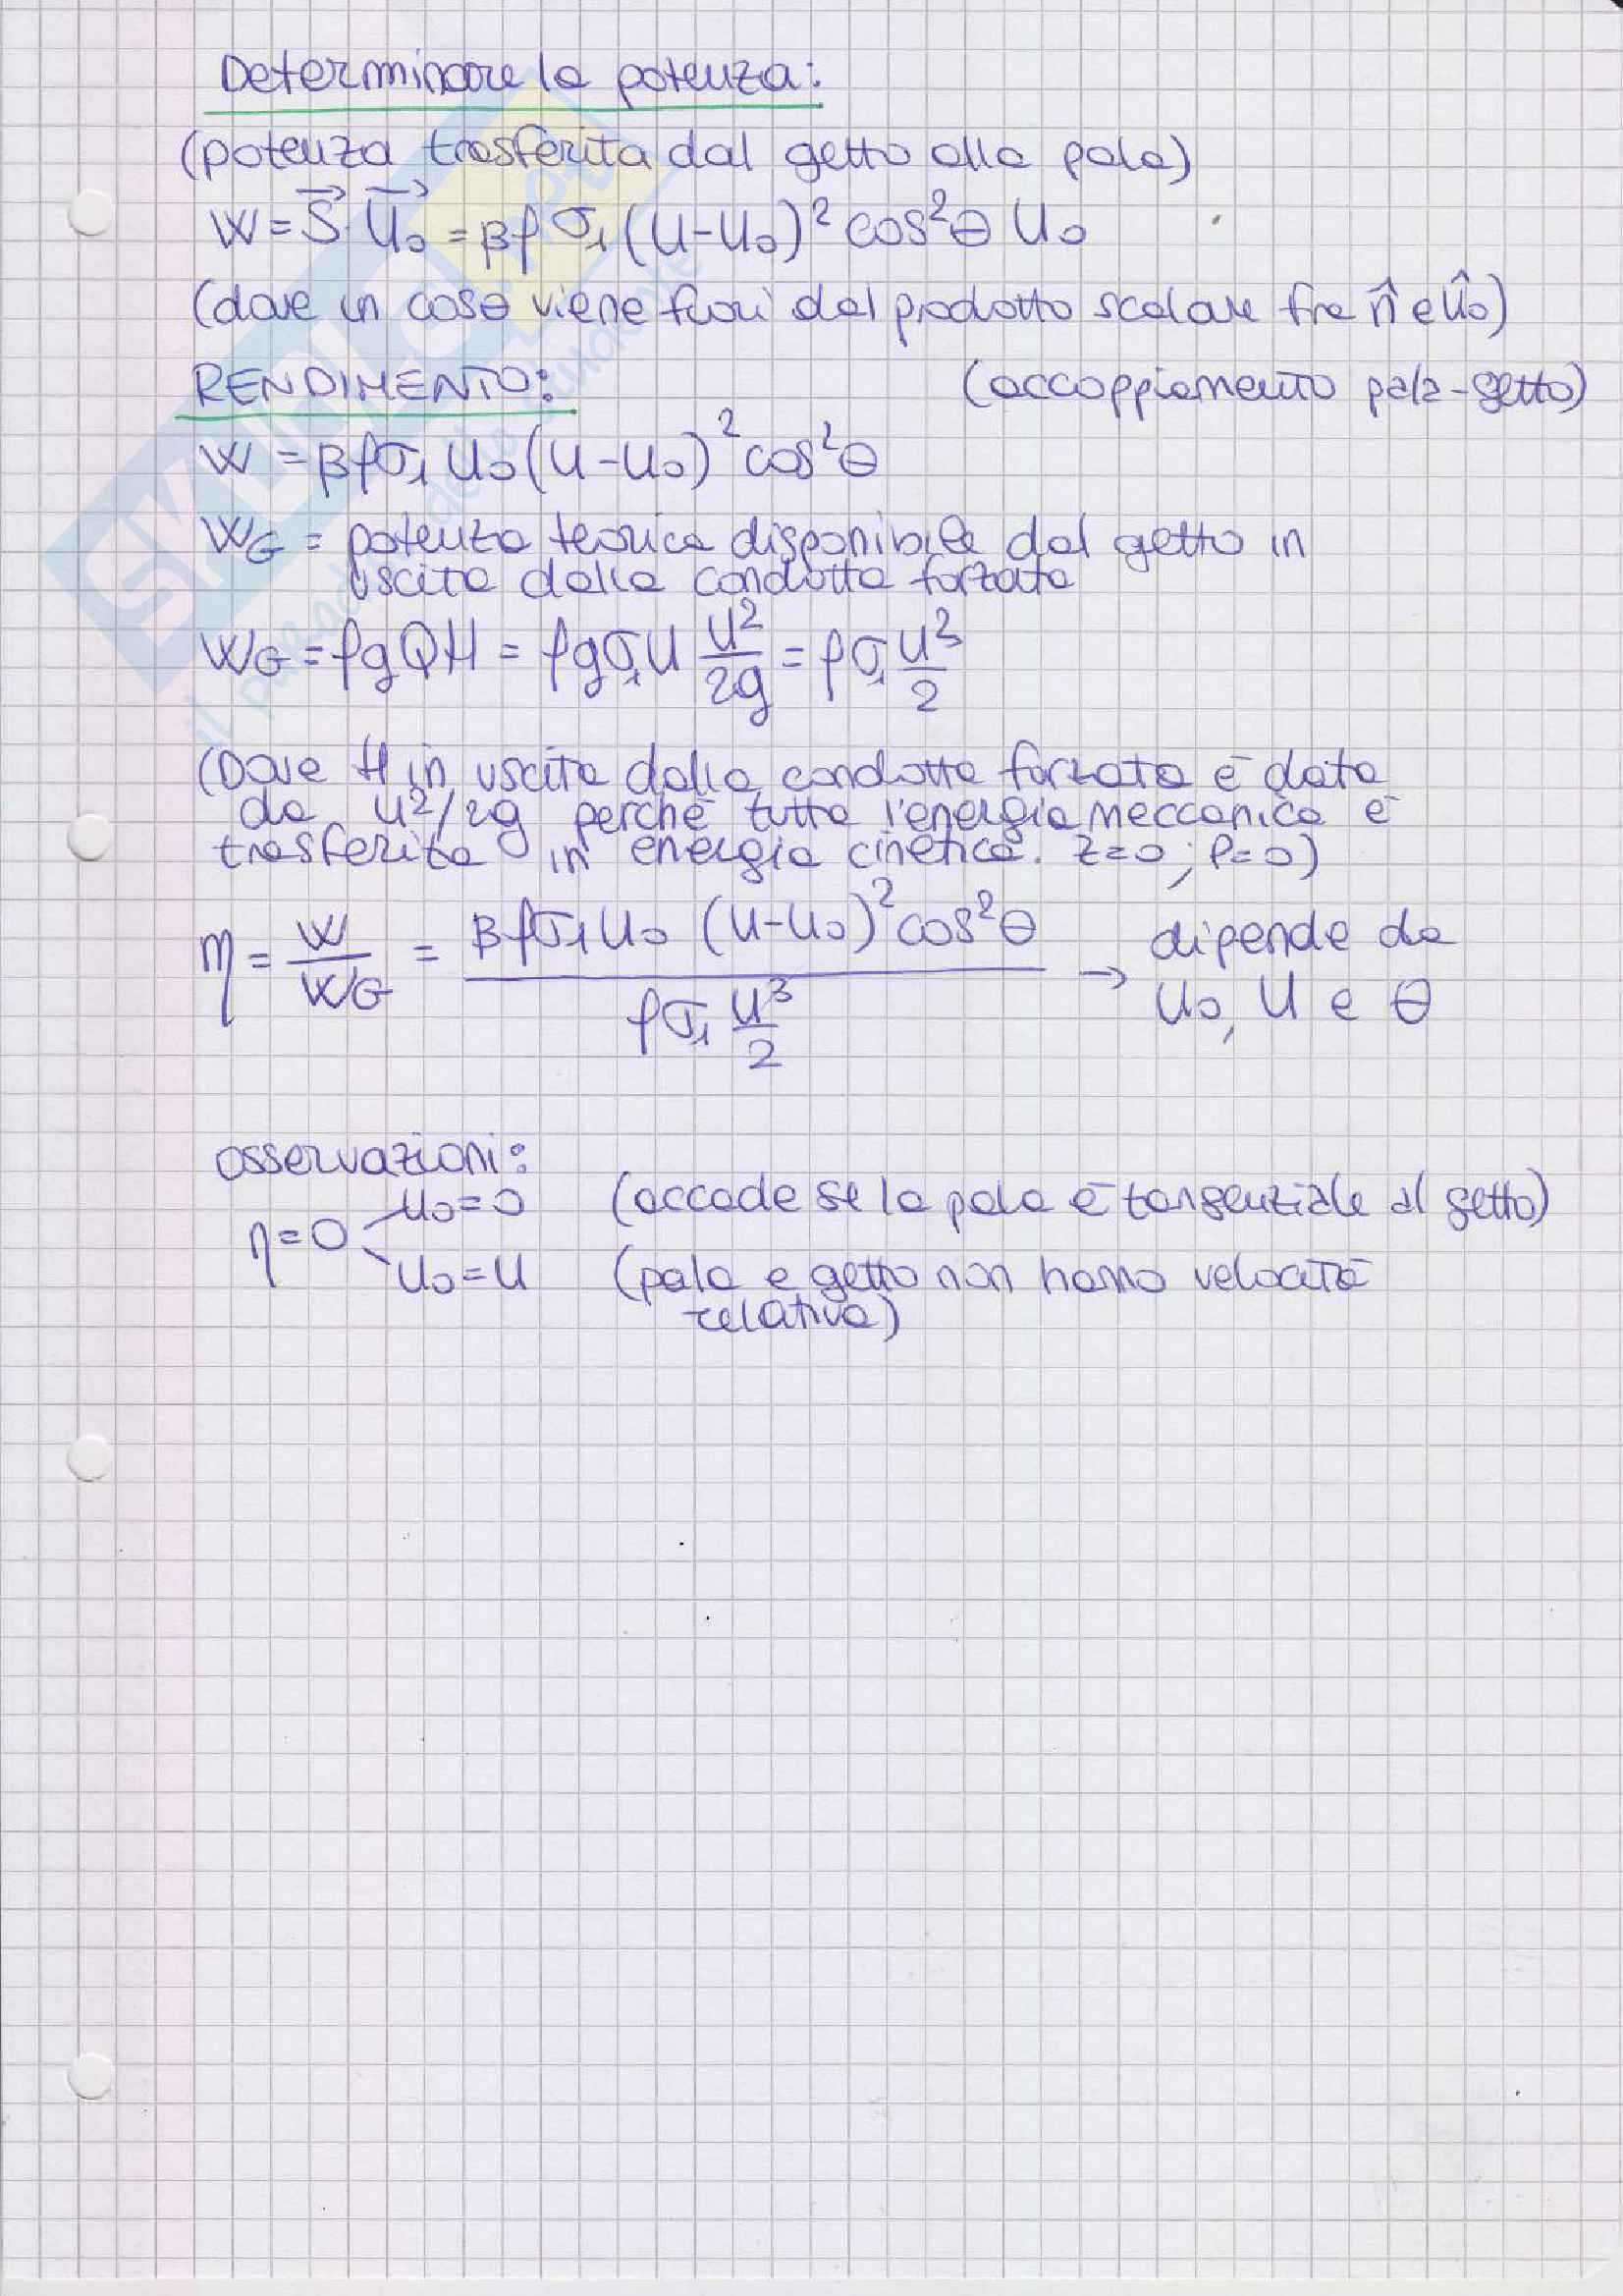 Determinare la potenza:
(potenza trasferita dal getto alla pala)
W = S⃗ · U⃗₀ = βρσ₁(U-U₀)² cos²θ U₀
(dove un cosθ viene fuori dal prodotto scalare fra n̂ e û₀)
RENDIMENTO: (accoppiamento pala-getto)
W = βρσ₁U₀(U-U₀)² cos²θ
W_G = potenza teorica disponibile dal getto in
uscita dalla condotta forzata
W_G = ρgQH = ρgσ₁U U²/2g = ρσ₁ U³/2
(Dove H in uscita dalla condotta forzata è data
da U²/2g perché tutta l'energia meccanica è
trasferita in energia cinetica. z=0; P=0)
η = W/W_G = βρσ₁U₀ (U-U₀)² cos²θ / ρσ₁ U³/2 → dipende da U₀, U e θ
osservazioni:
η=0 U₀=0 (accade se la pala è tangenziale al getto)
U₀=U (pala e getto non hanno velocità
relativa)